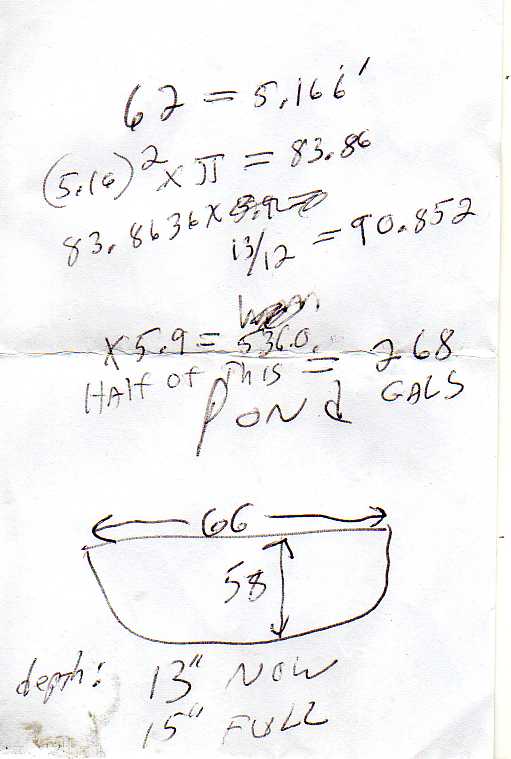 62 = 5.166'
(5.16)² × π = 83.86
83.8636 ×
13/12 = 90.852
×5.9 = 536.0.
HAlf of This = 268
GALS
PONd
66
58
depth: 13" NOW
15" FULL